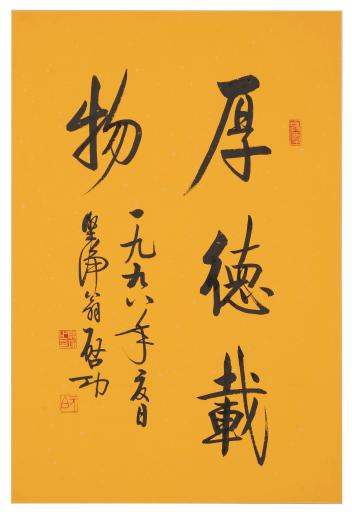 厚德載
物
一九九八年夏日
堅淨翁啟功